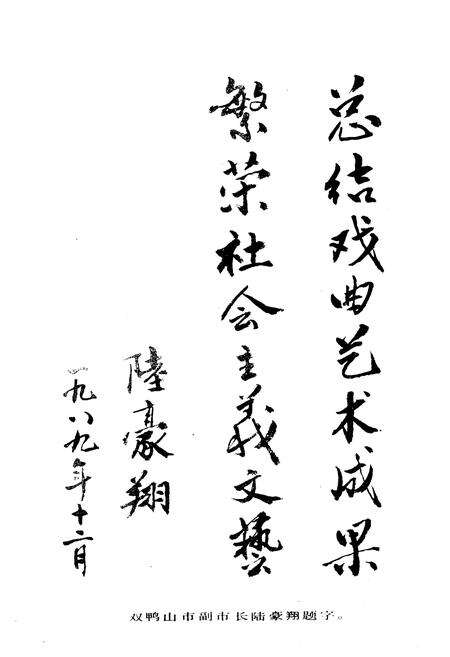 总结戏曲艺术成果
繁荣社会主义文藝
陸豪翔
一九八九年十二月
双鸭山市副市长陆豪翔题字。